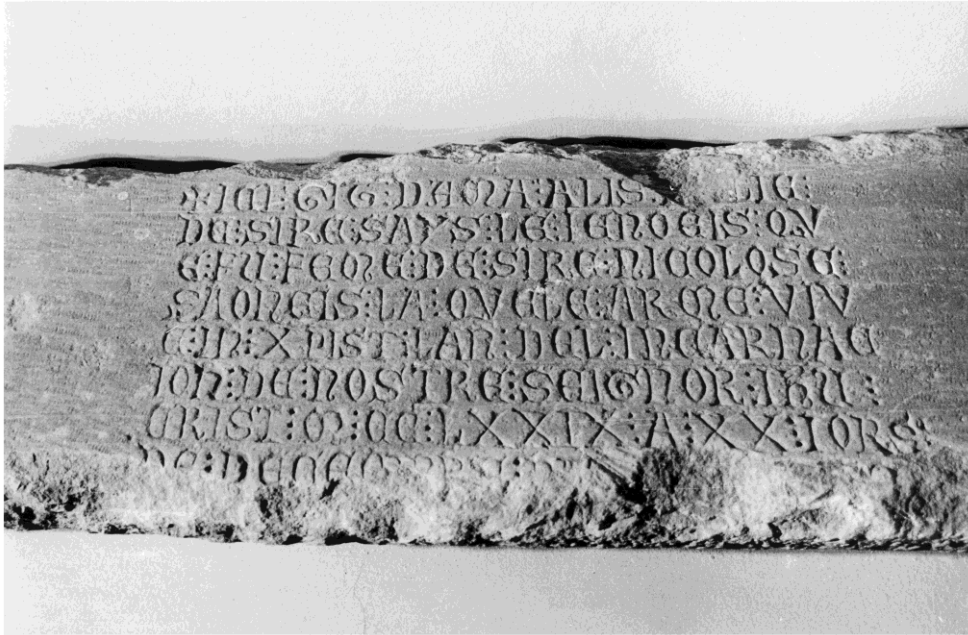 ICI : GIT : DAMA : ALIS : LIE :
DE : SIRE : SAYS : LE : IENOEIS : QV
E : FU : FEME : DE : SIRE : NICOLOSE :
SAONEIS : LA : QVELE : ARME : VIV
E : IN : XPISTI : LAN : DEL : INCARNAC
ION : DE : NOSTRE : SEIGNOR : IHU :
CRIST : M : CC : LXXIX : A : XX : IORS :
DE : DECEMBRE :